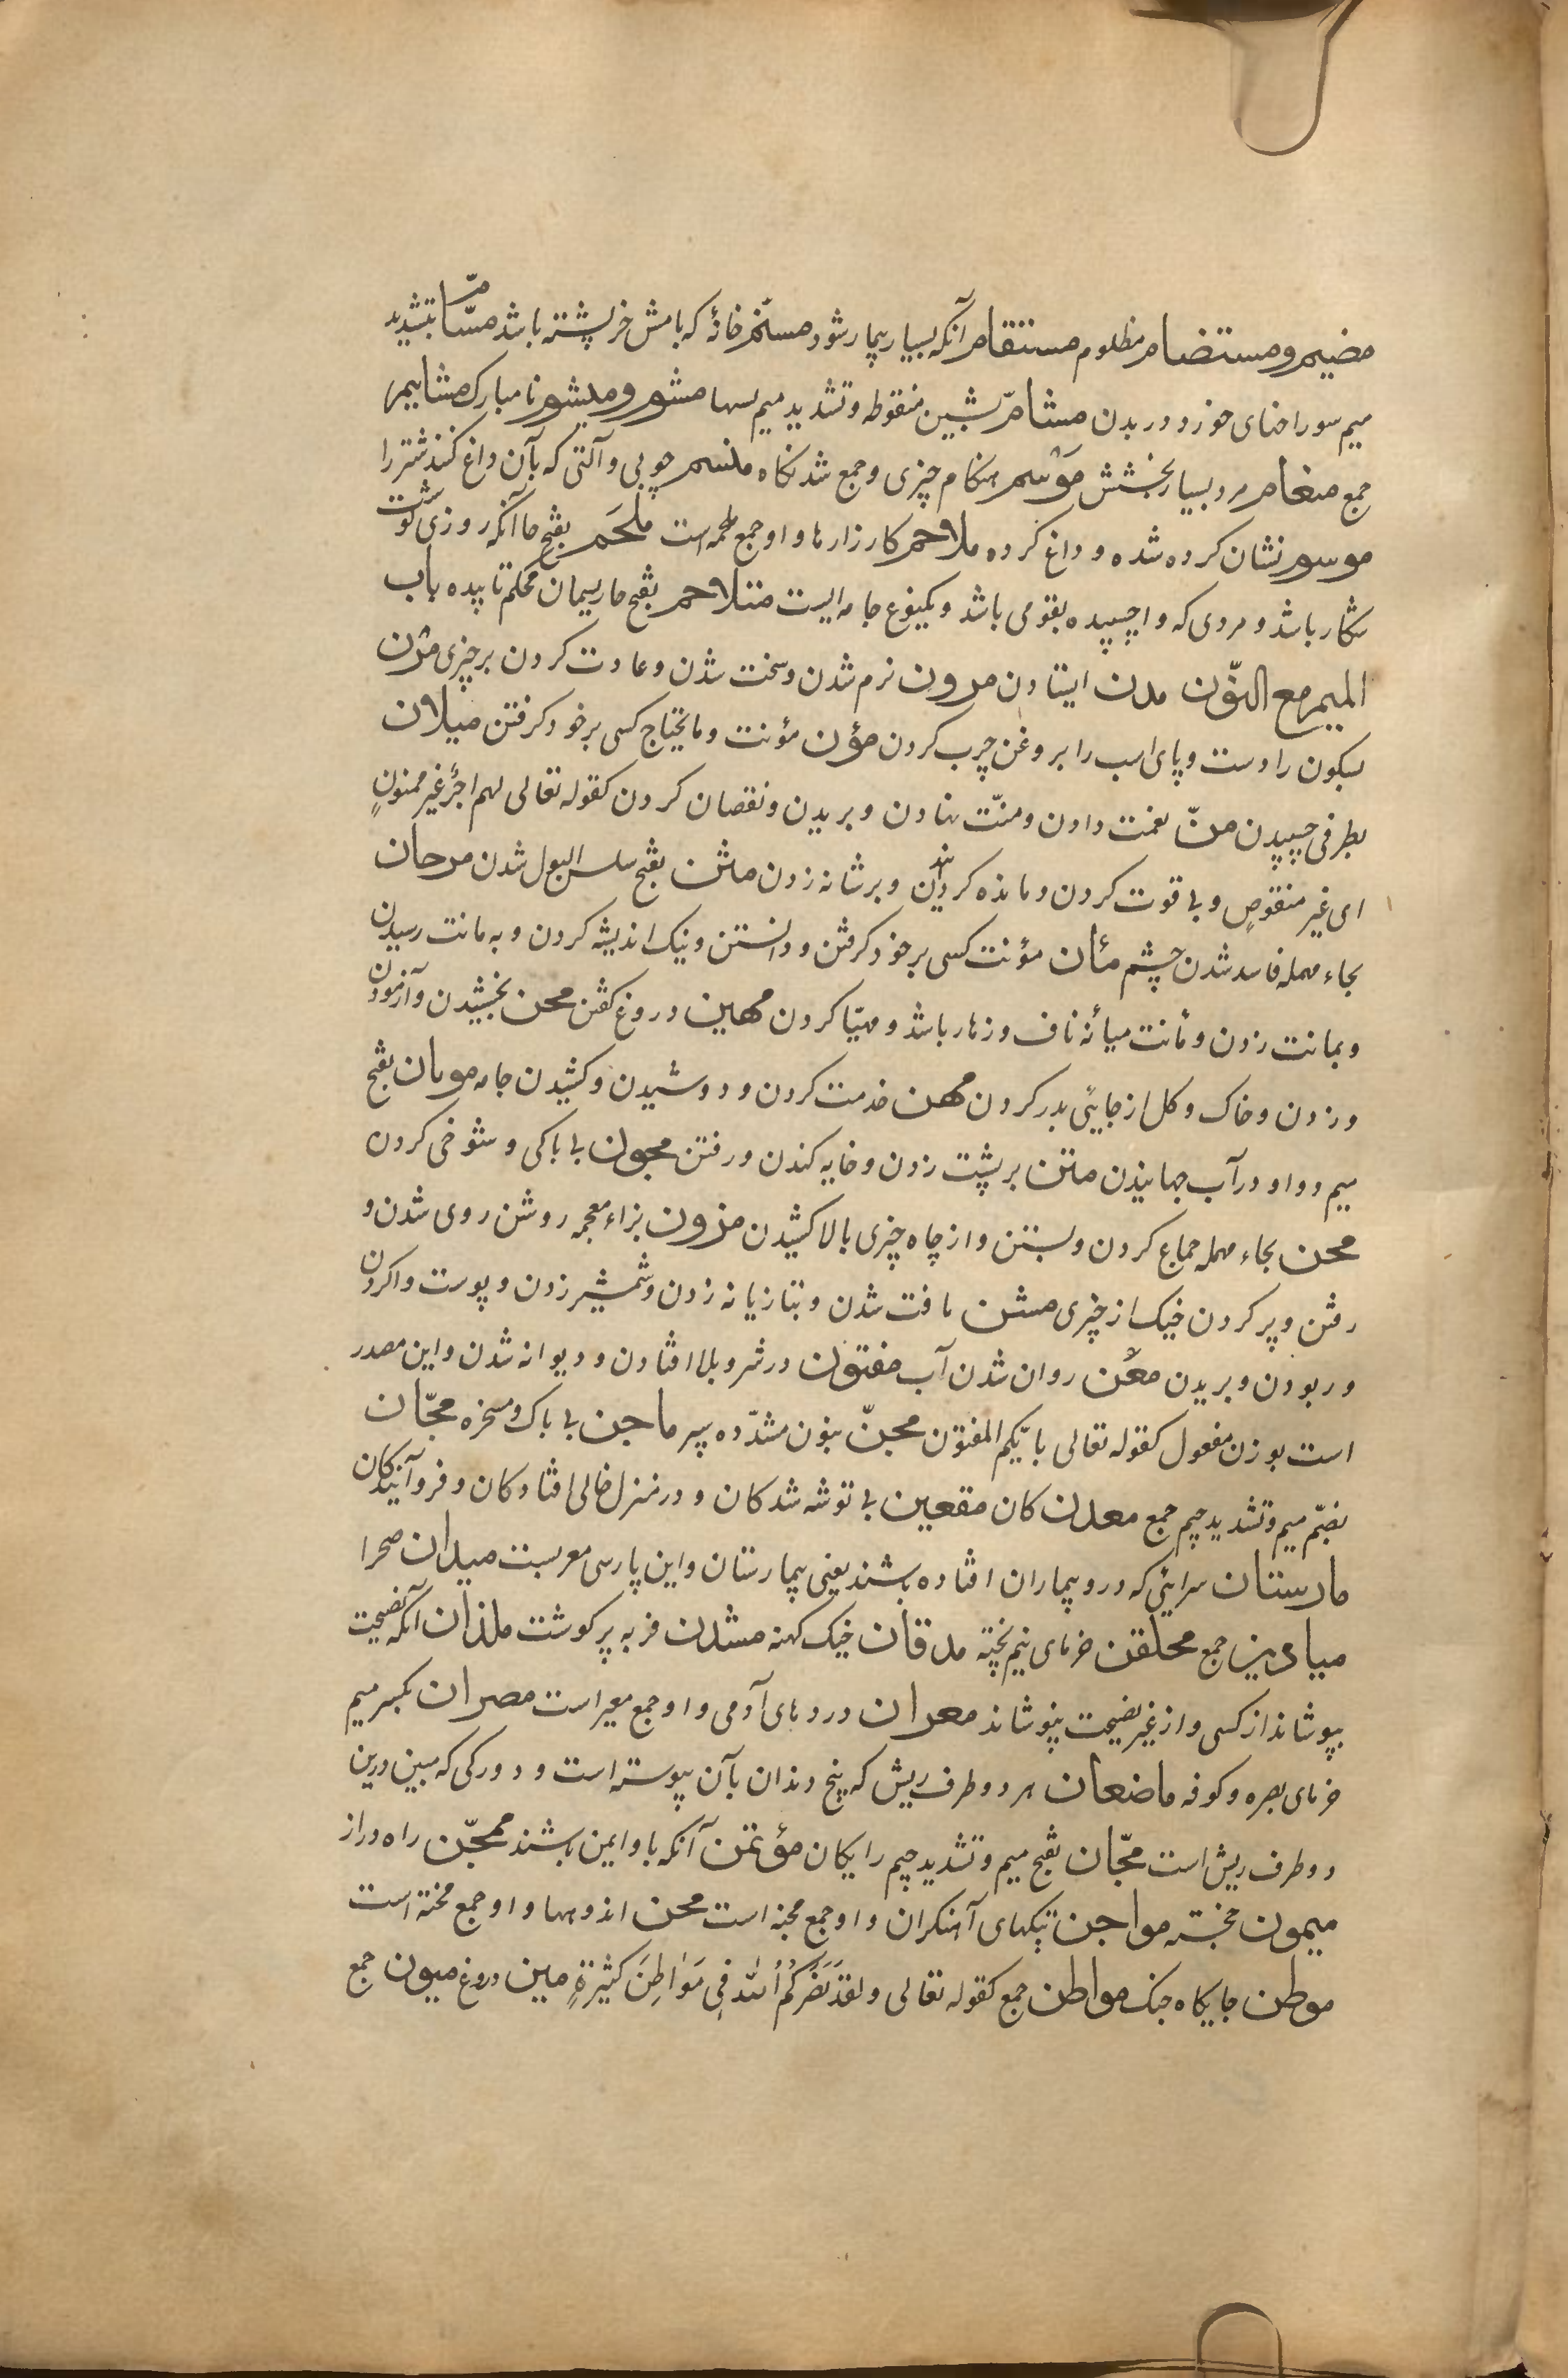 مضیم و مستضام مظلوم مستقام آنکه بسیار بیمار شود مسنّم خانهٔ که بامش خرپشته باشد مسّامّ بتشدید
میم سوراخهای خورد در بدن مشامّ بشین منقوطه و تشدید میم لسها مشوم و میشوم نا مبارک مشاییم
جمع منعام مرد بسیار بخشش موسم هنکام چیزی و جمع شد نکاه منسم چوبی و آلتی که بآن داغ کنند شتر را
موسوم نشان کرده شده و داغ کرده ملاحم کارزارها و او جمع ملحمه است ملحَم بفتح حا آنکه روزی کوشت
شکار باشد و مردی که واچسپیده بقومی باشد و یکنوع جامه ایست متلاحم بفتح حا ریسمان محکم تابیده باب
المیم مع النّون مدن ایستادن مرون نرم شدن و سخت شدن و عادت کردن بر چیزی مرن
بسکون را دست و پای اسب را بروغن چرب کردن مؤن مؤنت و ما یحتاج کسی بر خود کرفتن میلان
بطرفی چسپیدن منّ نعمت دادن و منّت نهادن و بریدن و نقصان کردن کقوله تعالی لهم اجرٌ غیر ممنونٍ
ای غیر منقوصٍ و بی قوت کردن و مانده کردانیدن و بر شانه زدن مثن بفتح سلس البول شدن مرحان
بحاء مهمله فاسد شدن چشم مأن مؤنت کسی بر خود کرفتن و دانستن و نیک اندیشه کردن و به مانت رسیدن
و بمانت زدن و مأنت میانهٔ ناف و زهار باشد و مهیّا کردن مهین دروغ کفتن محن بخشیدن و آزمودن
و زدن و خاک و کل از جایئی بدر کردن مهن خدمت کردن و دوشیدن و کشیدن جامه موهان بفتح
میم و واو در آب جهانیدن متن بر پشت زدن و خایه کندن و رفتن مجون بی باکی و شوخی کردن
محن بحاء مهمله جماع کردن و بستن و از چاه چیزی بالا کشیدن مزون بزاء معجمه روشن روی شدن و
رفتن و پر کردن خیک از چیزی مشن یافت شدن و بتازیانه زدن و شمشیر زدن و پوست واکردن
و ربودن و بریدن معن روان شدن آب مفتون در شر و بلا افتادن و دیوانه شدن و این مصدر
است بوزن مفعول کقوله تعالی بایّکم المفتون مجنّ بنون مشدّده سپر ماجن بی باک و مسخره مجّان
بضمّ میم و تشدید جیم جمع معدن کان مقعین بی توشه شدکان و در منزل خالی افتادکان و فرو آیندکان
مارستان سرایئی که درو بیماران افتاده باشند یعنی بیمارستان و این پارسی معربست میدان صحرا
میادین جمع محلقن خرمای نیم پخته مدقان خیک کهنه مشدن فربه پر کوشت ملذان آنکه نصیحت
بپوشاند از کسی و از غیر نصیحت نپوشاند معران درودهای آدمی و او جمع معیر است مصران بکسر میم
خرمای بصره و کوفه ماضغان هر دو طرف ریش که بیخ دندان بآن پیوسته است و دو رکی که مبین درین
دو طرف ریش است مجّان بفتح میم و تشدید جیم رایکان مؤتمن آنکه با و ایمن باشند ممحّن راه دراز
میمون خجسته مواجن تپکهای آهنکران و او جمع مجنه است محن اندوهها و او جمع محنة است
موطن جایکاه جنک مواطن جمع کقوله تعالی ولقد نَصَرَکُم اللّه فِی مَوَاطِنَ کثیرةٍ مین دروغ میون جمع